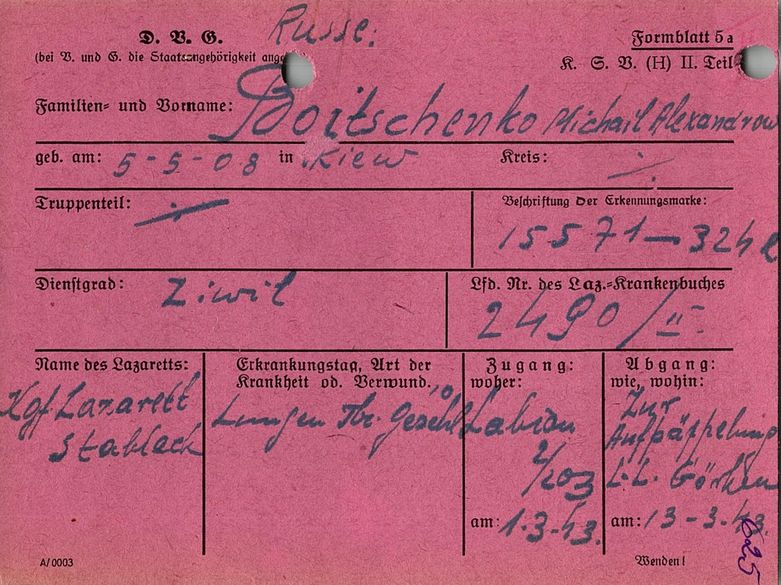 Russe.
D. V. G.
Formblatt 5a
(bei V. und G. die Staatsangehörigkeit
K. S. V. (H) II. Teil
Familien- und Vorname: Boitschenko Michail Alexandrow
geb. am: 5-5-08 in Kiew Kreis: ./.
Truppenteil: ./.
Beschriftung der Erkennungsmarke:
15571-324
Dienstgrad: Ziwil
Lfd. Nr. des Laz.-Krankenbuches
2490/II
Name des Lazaretts:
Kgf. Lazarett
Stablack
Erkrankungstag, Art der
Krankheit od. Verwund.
Lungen Tbc.
Zugang:
woher:
Labiau
2/203
am: 1-3-43.
Abgang:
wie, wohin:
Zur
Aufpäppelung
L.L. Görken
am: 13-3-43.
625
A/0003
Wenden!